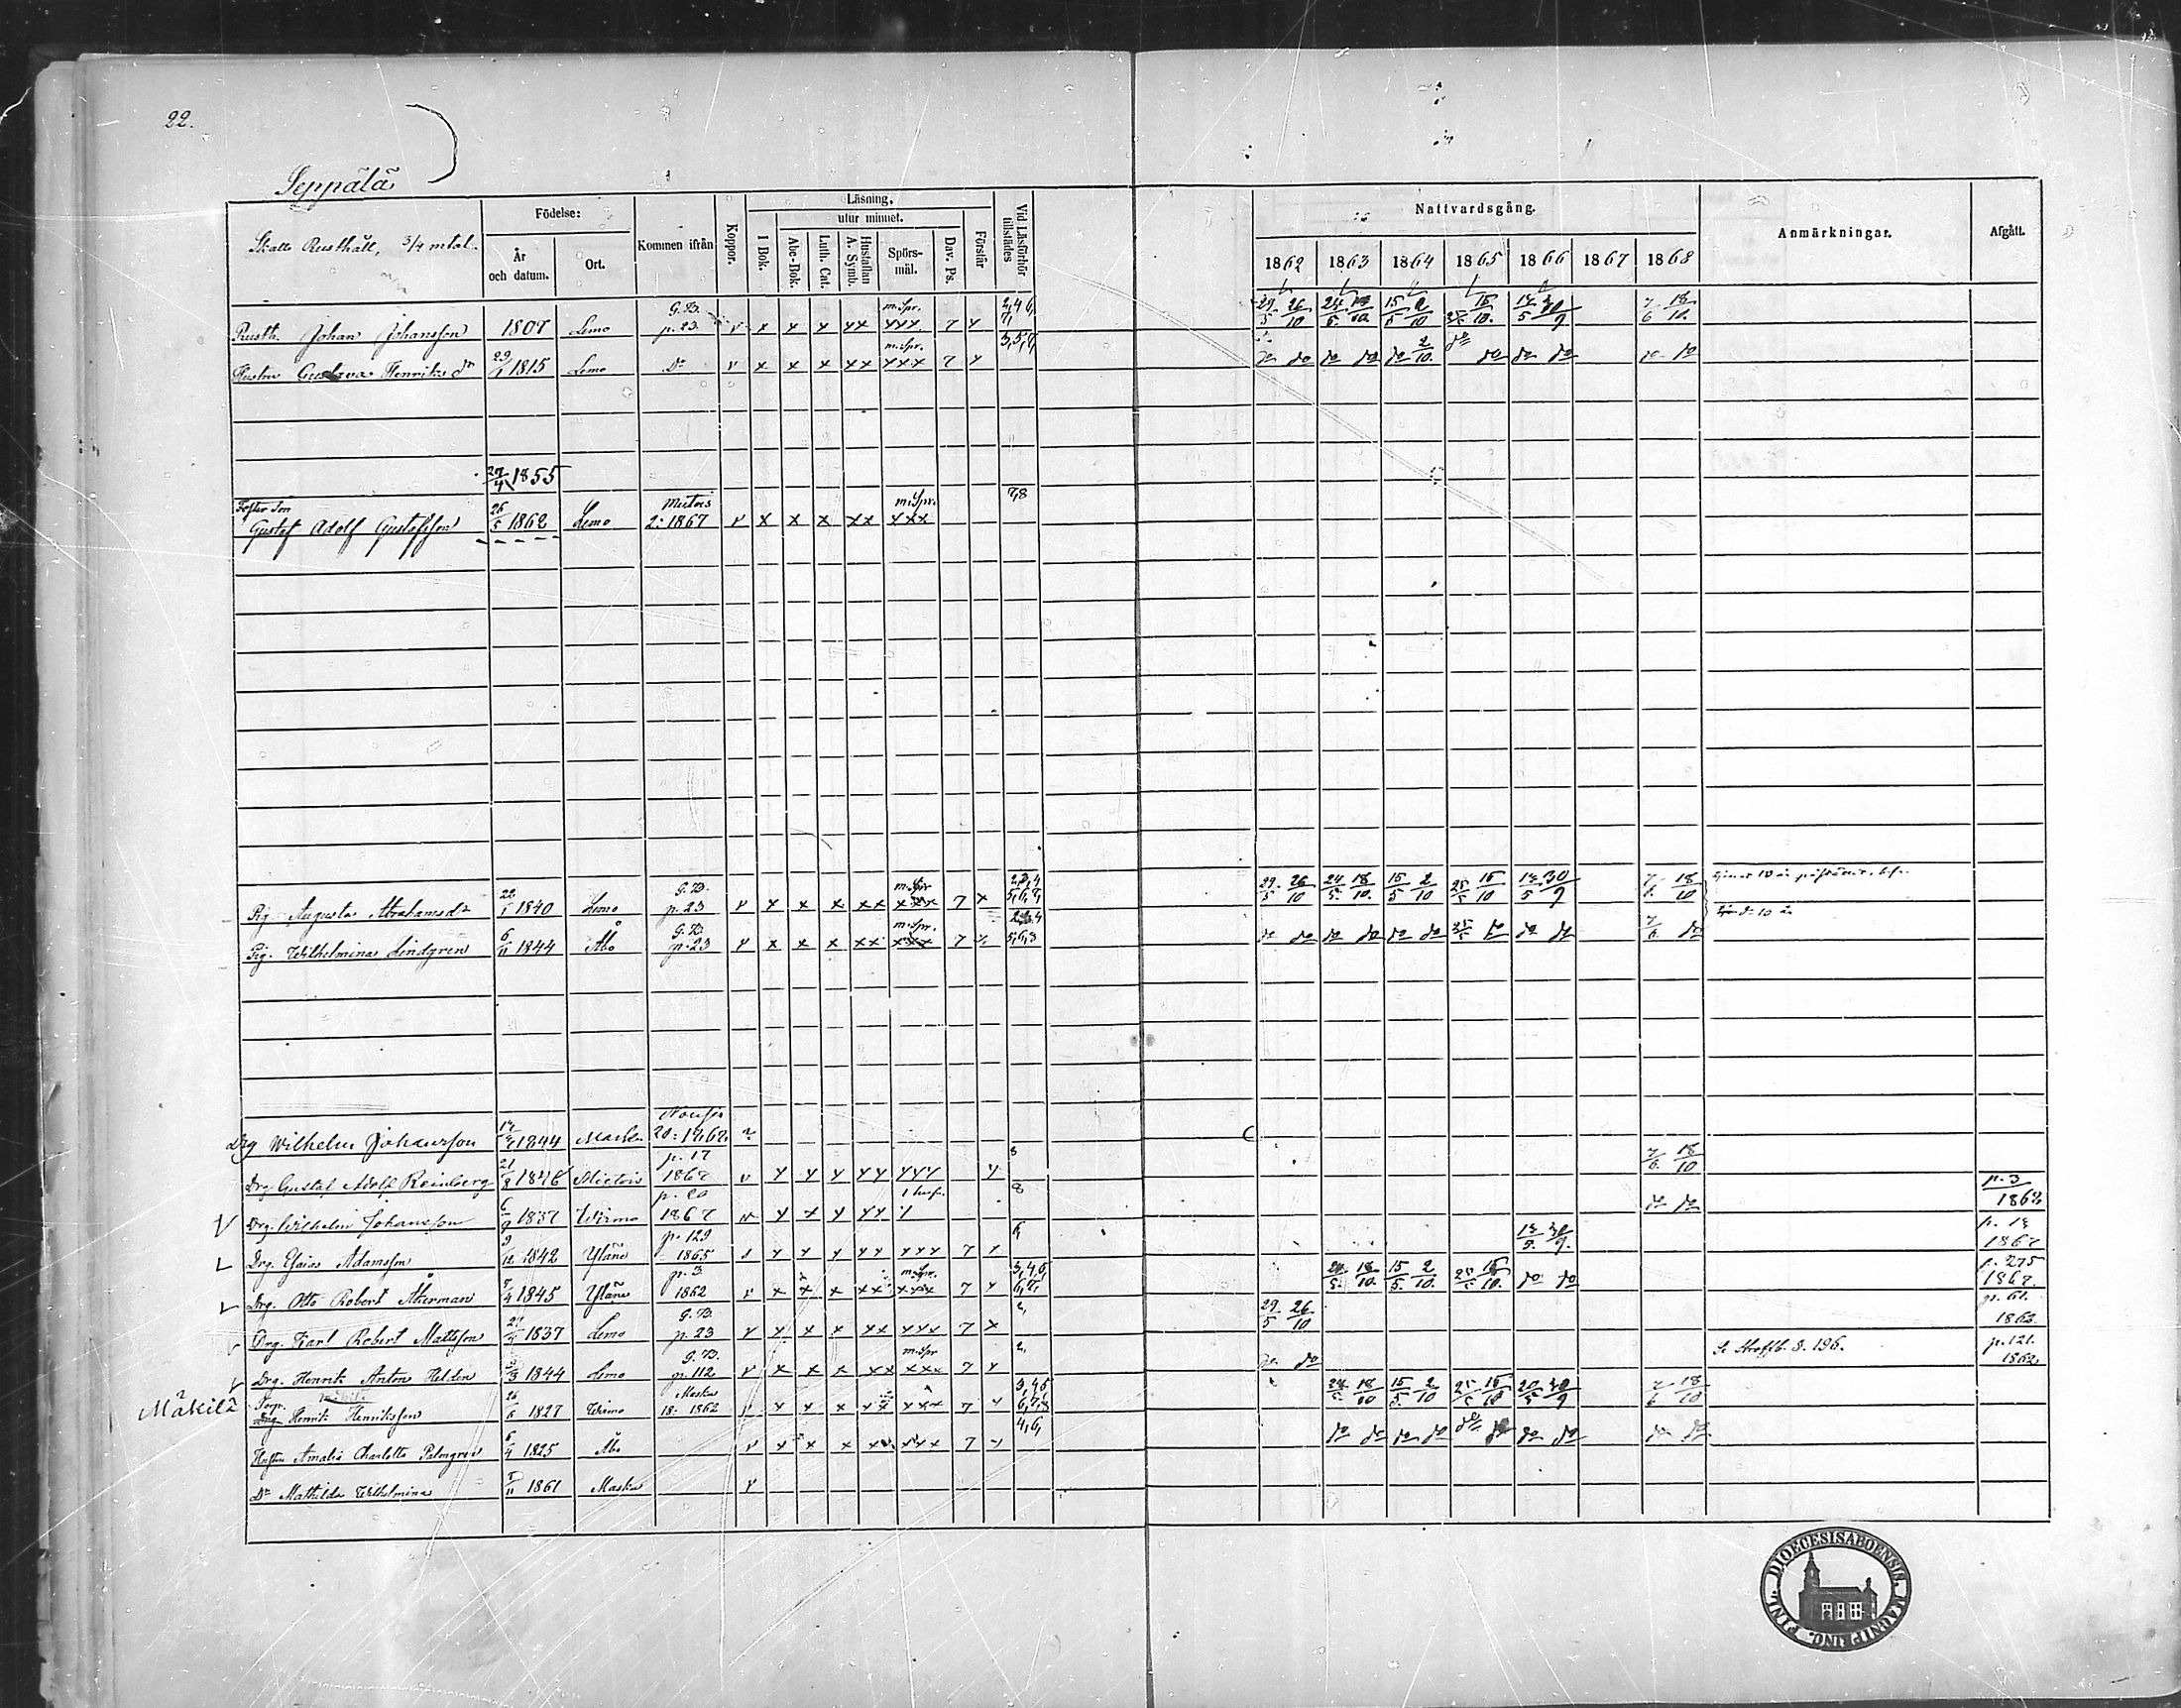 22.
Seppälä
Skatte Rusthåll, 3/4 mtal.
Födelse:
År och datum.
Ort.
Kommen ifrån
Koppor.
Läsning,
utur minnet.
I Bok.
Abc-Bok.
Luth. Cat.
Hustaflan A. Symb.
Spörsmål.
Dav. Ps.
Förstår
Vid Läsförhör tillstädes
Nattvardsgång.
1862 1863 1864 1865 1866 1867 1868
Anmärkningar.
Afgått.
Rusth. Johan Johansson 1807 Lemo G.B. p. 23 v x x x xx m.Spr. xxx 7 x 2,4,6,7, 29/5 26/10 24/5 18/10 15/5 2/10 15/10 30/9 7/6 18/10
Hustru Gustava Henriks dr 1815 Lemo Do v x x x xx m.Spr. xxx 7 x 3,5,7, do do do do do 2/10 do do do do do do
27/4 1855
Foster Son
Gustaf Adolf Gustafsson 26/5 1862 Lemo Mietois 2: 1867 v x x x xx m.Spr. xxx 7,8
Pig. Augusta Abrahamsdr 22/1 1840 Lemo G.B. p. 23 v x x x xx m.Spr xxx 7 x 2,3,4 5,6,7, 29/5 26/10 24/5 18/10 15/5 2/10 25/5 15/10 30/9 7/6 18/10
Pig. Wilhelmina Lindgren 6/11 1844 Åbo G.B. p. 23 v x x x xx m.Spr. xxx 7 x 5,6,8 do do do do do do 25/5 do do do 7/6 do
Drg Wilhelm Johansson 1844 Masku Nousis 20: 1862
Drg. Gustaf Adolf Reinberg 21/8 1846 Mietois p. 17 1867 v x x x xx xxx x 8 7/6 18/10
Drg. Wilhelm Johansson 6/9 1837 Wirmo p. 20 1867 x x x xx 8 do do p. 3 1868
Drg. Esaias Adamsson 9/12 1842 Yläne p. 129 1865 x x x xx xxx 7 x 6, 30/9 1867
Drg. Otto Robert Åkerman 1845 Yläne p. 3 1862 v x x x xx m.Spr. xxx 7 x 3,4,6, 6,7, 18/10 15/5 2/10 25/5 15/10 do do p. 275 1867
Drg. Karl Robert Mattsson 1837 Lemo G.B. p. 23 v x x x xx xxx 7 x 2, 29/5 26/10 p. 61. 1863
Drg. Henrik Anton Helden 1844 Lemo G.B. p. 112 v x x x xx m.Spr xxx 7 x 2, do do S. Straffb. S. 196. p. 121. 1862
Mäkilä
Torp. Drg Henrik Henriksson 26/6 1827 Wirmo Masku 18: 1862 x x x xx xxx 7 x 3,4,5 6,7,8 24/5 18/10 15/5 2/10 25/5 15/10 20/5 30/9 7/6 18/10
Hustru Amalia Charlotta Palmgren 6/4 1825 Åbo v x x x xx xxx 7 x 4,6, do do do do do do do do do do
Dr Mathilda Wilhelmina 1861 Masku v
DIOECESIS ABOENSIS MAGNI PRINC. FINL.